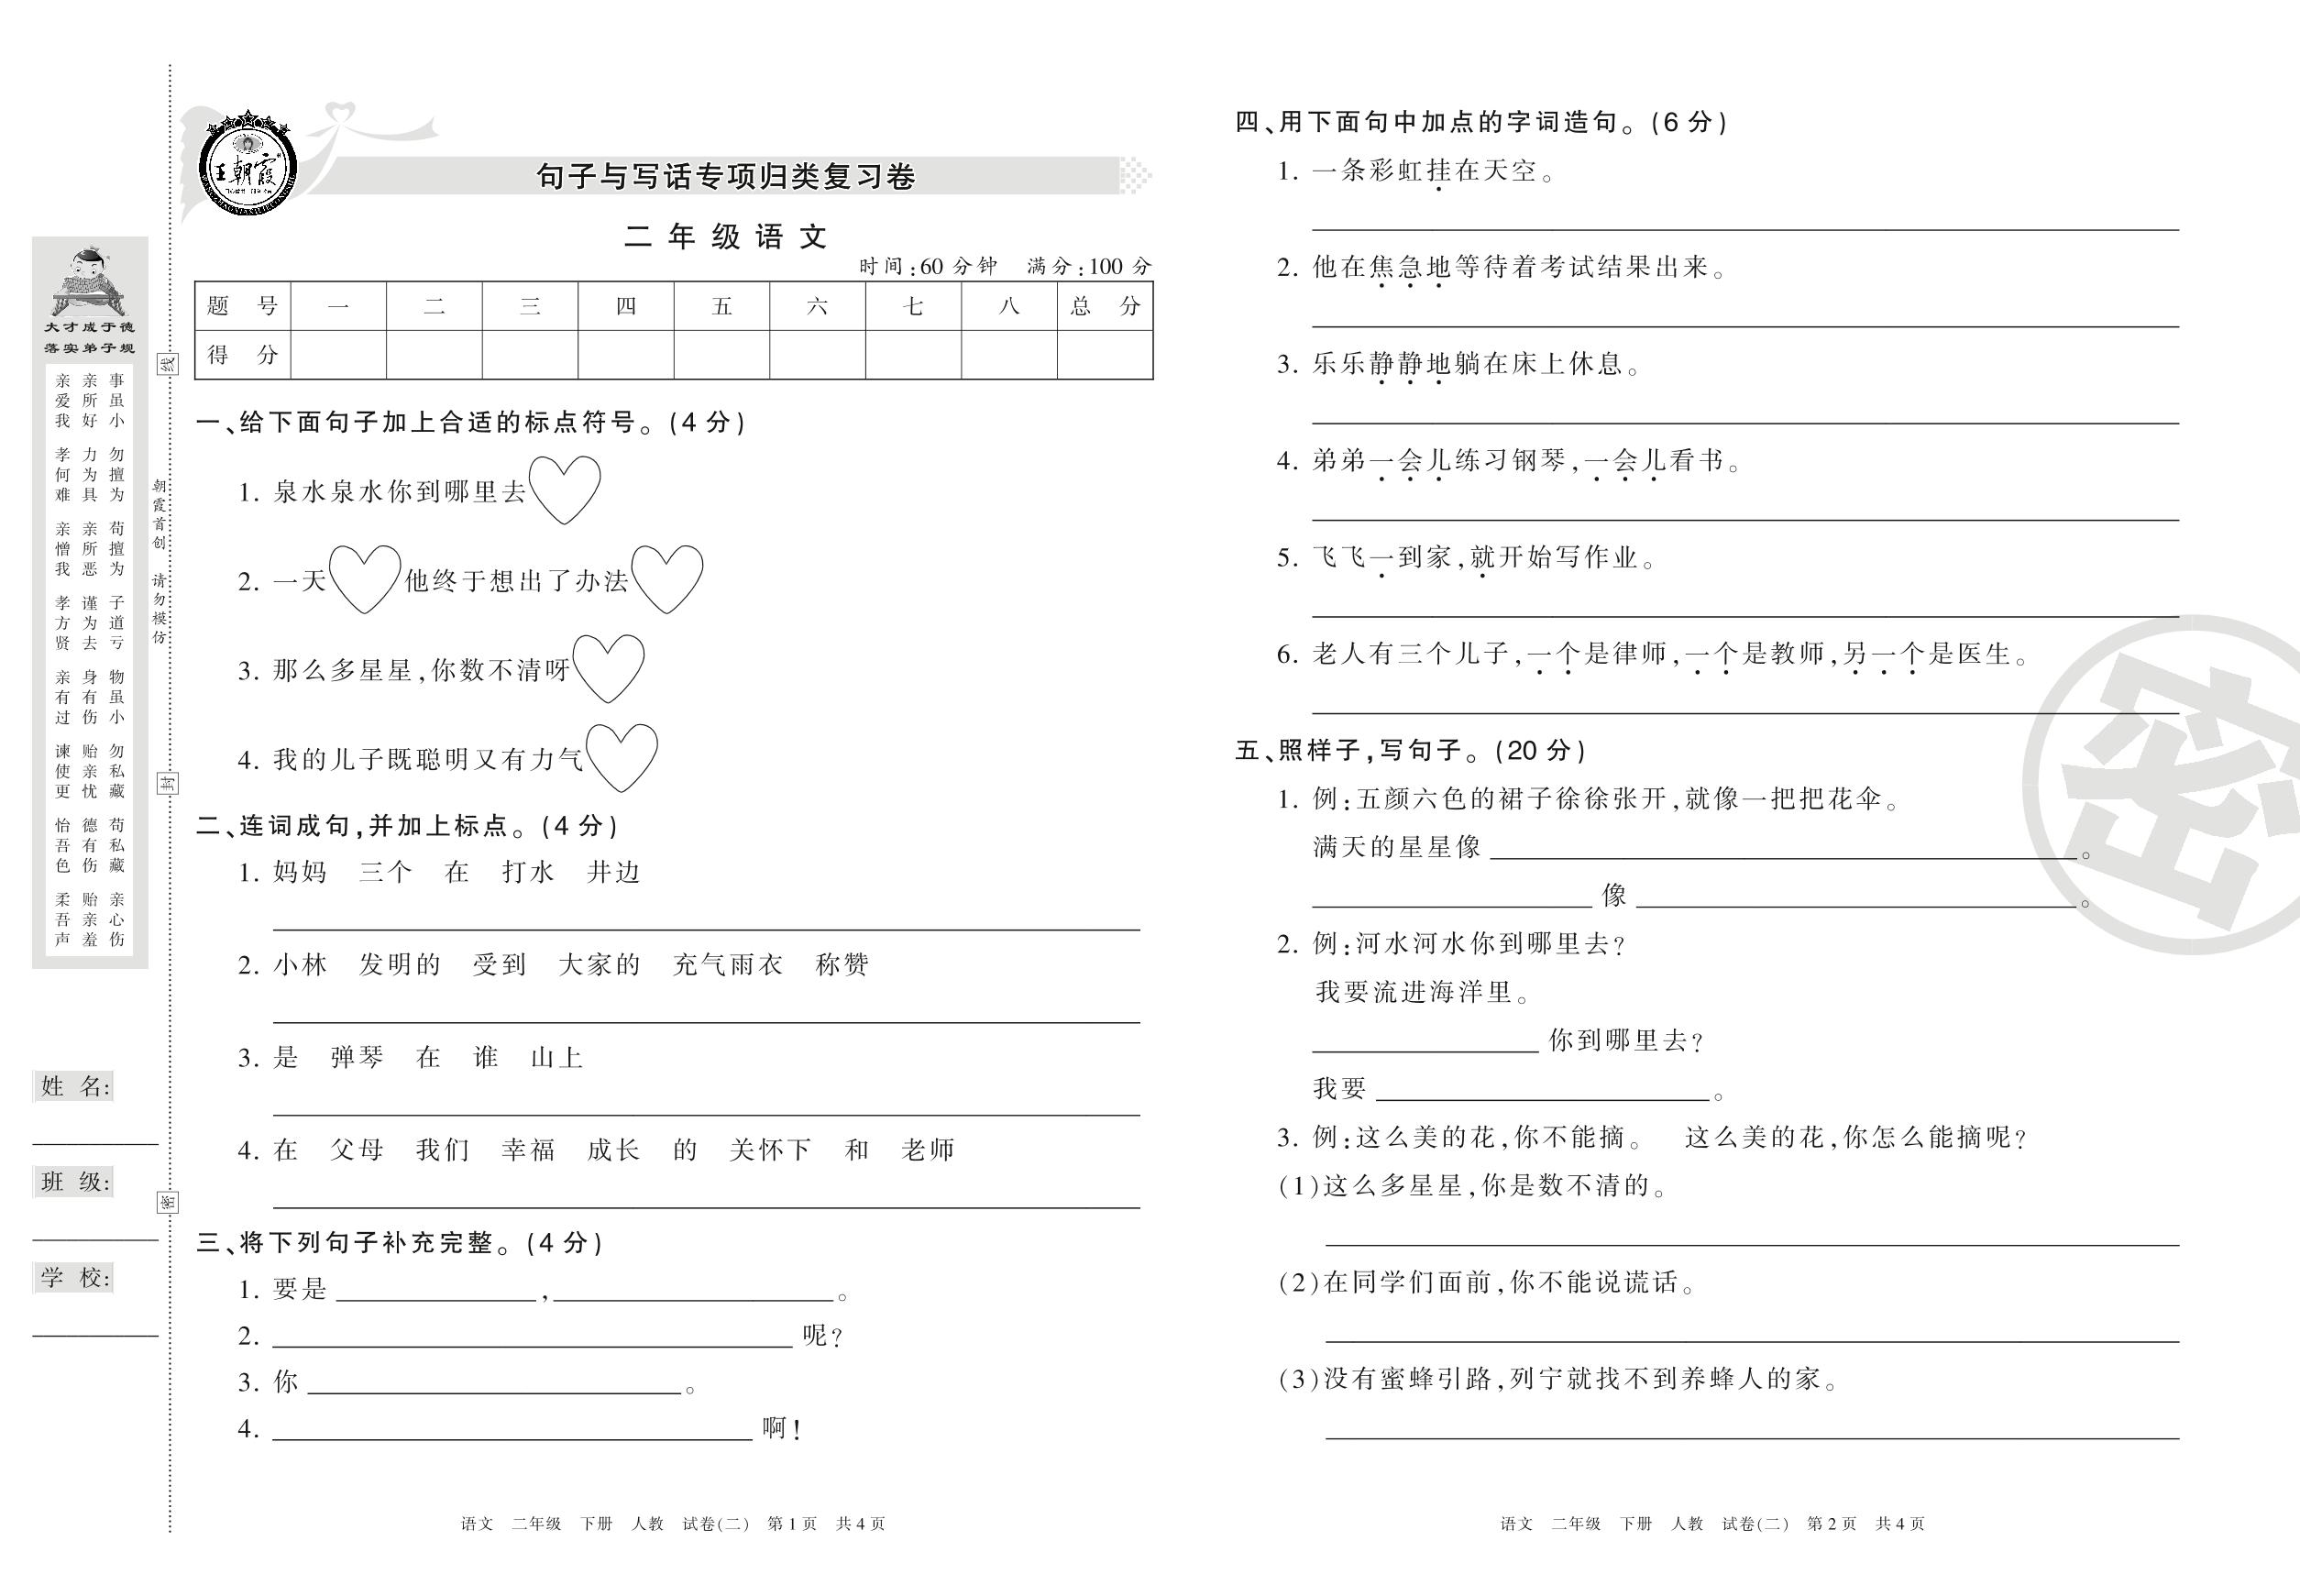 王朝霞
句子与写话专项归类复习卷
二年级语文
时间:60 分钟 满分:100 分
题 号 一 二 三 四 五 六 七 八 总 分
得 分
一、给下面句子加上合适的标点符号。(4 分)
1. 泉水泉水你到哪里去
2. 一天 他终于想出了办法
3. 那么多星星,你数不清呀
4. 我的儿子既聪明又有力气
二、连词成句,并加上标点。(4 分)
1. 妈妈 三个 在 打水 井边
2. 小林 发明的 受到 大家的 充气雨衣 称赞
3. 是 弹琴 在 谁 山上
4. 在 父母 我们 幸福 成长 的 关怀下 和 老师
三、将下列句子补充完整。(4 分)
1. 要是 , 。
2. 呢?
3. 你 。
4. 啊!
语文 二年级 下册 人教 试卷(二) 第 1 页 共 4 页
四、用下面句中加点的字词造句。(6 分)
1. 一条彩虹挂在天空。
2. 他在焦急地等待着考试结果出来。
3. 乐乐静静地躺在床上休息。
4. 弟弟一会儿练习钢琴,一会儿看书。
5. 飞飞一到家,就开始写作业。
6. 老人有三个儿子,一个是律师,一个是教师,另一个是医生。
五、照样子,写句子。(20 分)
1. 例:五颜六色的裙子徐徐张开,就像一把把花伞。
满天的星星像 。
像 。
2. 例:河水河水你到哪里去?
我要流进海洋里。
你到哪里去?
我要 。
3. 例:这么美的花,你不能摘。 这么美的花,你怎么能摘呢?
(1)这么多星星,你是数不清的。
(2)在同学们面前,你不能说谎话。
(3)没有蜜蜂引路,列宁就找不到养蜂人的家。
语文 二年级 下册 人教 试卷(二) 第 2 页 共 4 页
密
大才成于德
落实弟子规
事虽小 勿擅为 苟擅为 子道亏 物虽小 勿私藏 苟私藏 亲心伤
亲所好 力为具 亲所恶 谨为去 身有伤 贻亲忧 德有伤 贻亲羞
亲爱我 孝何难 亲憎我 孝方贤 亲有过 谏使更 怡吾色 柔吾声
朝霞首创 请勿模仿
线
封
密
姓 名:
班 级:
学 校: